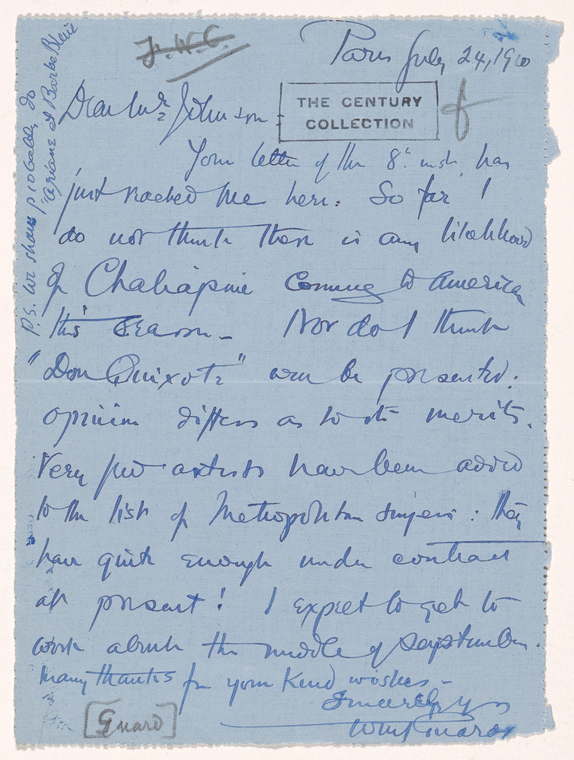 Paris July 24, 1910
THE CENTURY
COLLECTION
Dear Mr. Johnson
Your letter of the 8th inst. has
just reached me here. So far I
do not think there is any likelihood
of Chaliapine coming to America
this season — Nor do I think
"Don Quixote" will be presented:
opinion differs as to its merits.
Very few artists have been added
to the list of Metropolitan singers: they
have quite enough under contract
at present! I expect to get to
work about the middle of September.
Many thanks for your kind wishes —
Sincerely yrs
Wm J Guard
[Guard]
P.S. We shall probably do
"Ariane et Barbe Bleue"